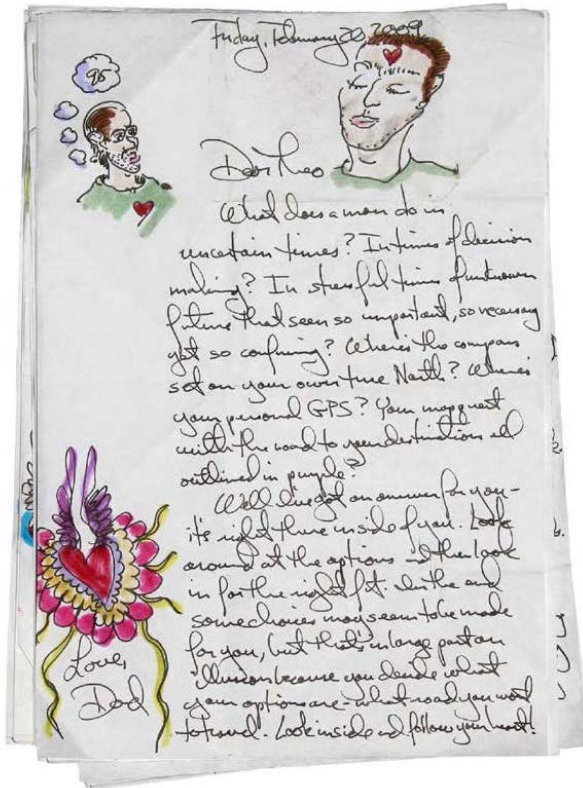 Friday, February 20, 2009
Dear Theo
What does a man do in
uncertain times? In times of decision
making? In stressful times of unknown
future that seem so important, so necessary
yet so confusing? Where's the compass
set on your own true North? Where's
your personal GPS? Your mapquest
with the road to your destination all
outlined in purple?
Well I've got an answer for you-
it's right there inside of you. Look
around at the options and then look
in for the right fit. In the end
some choices may seem to be made
for you, but that's in large part an
illusion because you decide what
your options are - what road you want
to travel. Look inside and follow your heart!
Love,
Dad